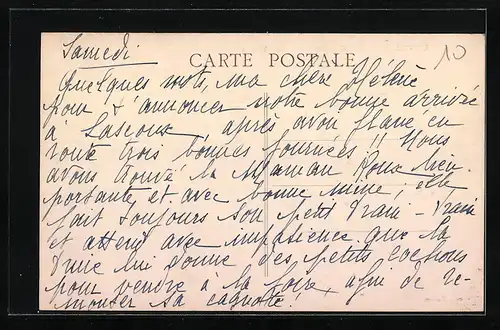 Samedi
CARTE POSTALE
10
Quelques mots, ma chère Hélène
pour t'annoncer notre bonne arrivée
à Lascoux, après avoir flané en
route trois bonnes journées !! Nous
avons trouvé la Maman Roux bien
portante, et avec bonne mine, elle
fait toujours son petit train-train
et attend avec impatience que la
truie lui donne des petits cochons
pour vendre à la foire, afin de re-
monter sa cagnotte!